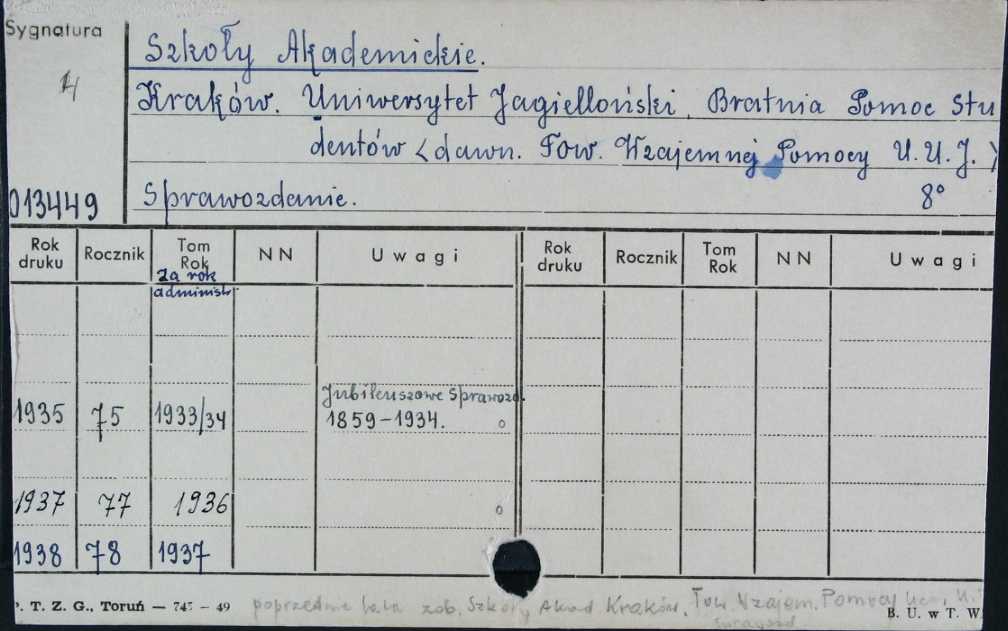 Sygnatura
4
013449
Szkoły Akademickie.
Kraków. Uniwersytet Jagielloński. Bratnia Pomoc Stu
dentów <dawn. Tow. Wzajemnej Pomocy U.U.J.>
Sprawozdanie. 8°
Rok druku Rocznik Tom Rok NN Uwagi Rok druku Rocznik Tom Rok NN Uwagi
Za rok
administr.
Jubileuszowe Sprawozd.
1935 75 1933/34 1859-1934.
1937 77 1936
1938 78 1937
P. T. Z. G., Toruń — 745 — 49
poprzednie lata zob. Szkoły Akad Kraków. Tow. Wzajem. Pomocy
B. U. w T. W